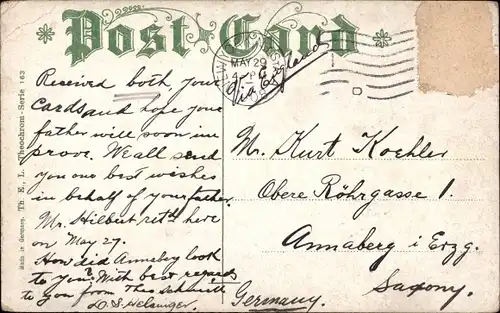 Post Card
MAY 29
Via England
Received both, your
cards and hope your
father will soon im
prove. We all send
you our best wishes
in behalf of your father.
Mr. Hilbert ret'd here
on May 27.
How did Anneberg look
to you? With best regards
to you from Theo Schmitt
Mr. Kurt Koehler
Obere Röhrgasse 1.
Annaberg i Erzg.
Saxony.
Germany.
Made in Germany. Th. E. L. Theochrom-Serie 163